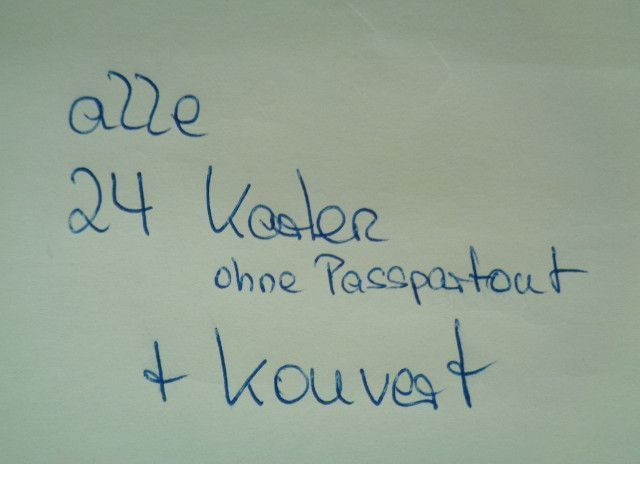 alle
24 Karten
ohne Passpartout
+ Kouvert